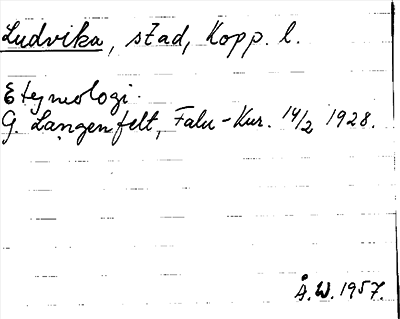 Ludvika, stad, Kopp. l.
Etymologi.
G. Langenfelt, Falu-Kur. 14/2 1928.
Å.W. 1957.